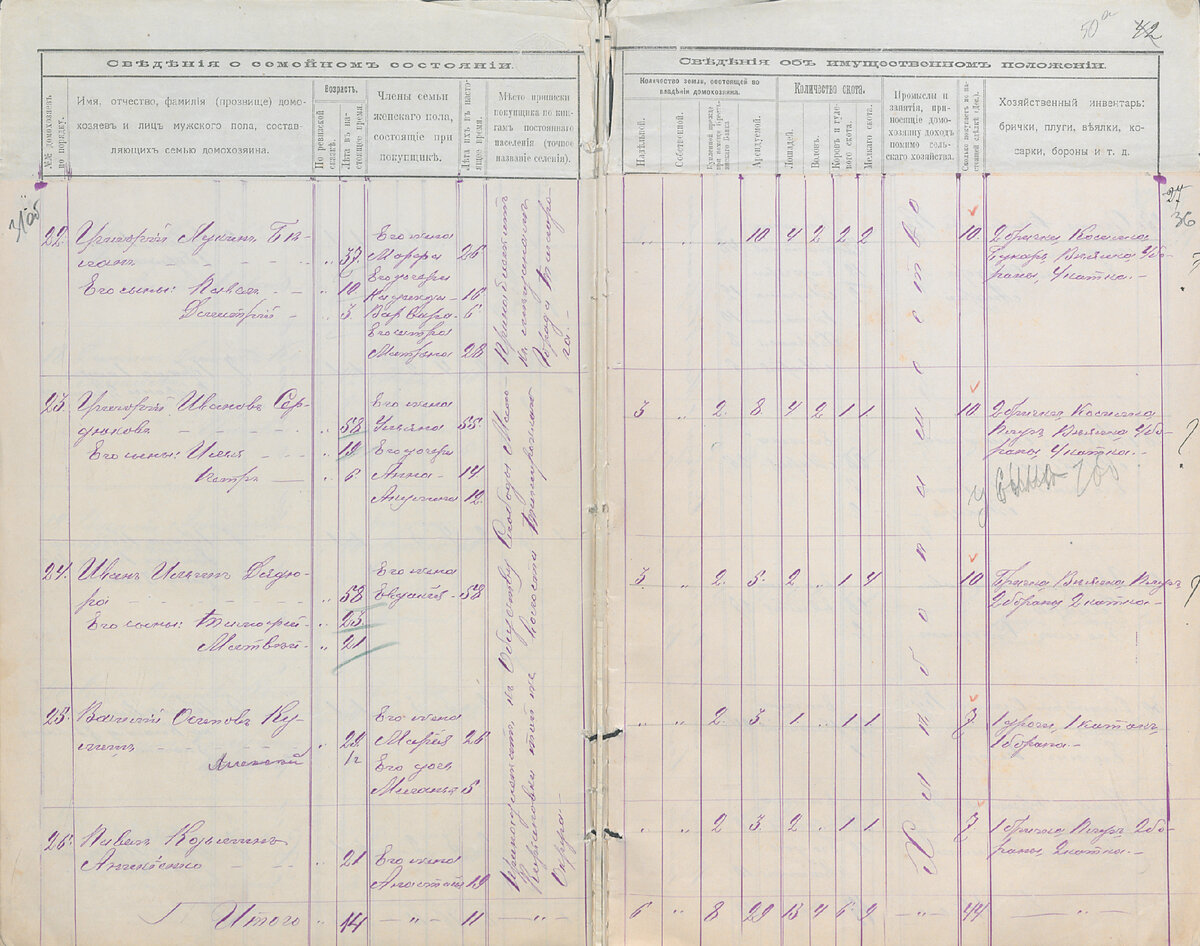 50а 42
Свѣдѣнія о семейномъ состояніи.
№№ домохозяевъ по порядку.
Имя, отчество, фамилія (прознище) домохозяевъ и лицъ мужского пола, составляющихъ семью домохозяина.
Возрастъ.
По ревизской сказкѣ.
Лѣта въ настоящее время.
Члены семьи женскаго пола, состоящіе при покупщикѣ.
Лѣта ихъ въ настоящее время.
Мѣсто приписки покупщика по книгамъ постояннаго населенія (точное названіе селенія).
Свѣдѣнія объ имущественномъ положеніи.
Количество земли, состоящей во владѣніи домохозяина.
Надѣльной.
Собственной.
Арендуемой.
Количество скота.
Лошадей.
Воловъ.
Коровъ и гулевого скота.
Мелкаго скота.
Промыслы и занятія, приносящіе домохозяину доходъ помимо сельскаго хозяйства.
Хозяйственный инвентарь: брички, плуги, вѣялки, косарки, бороны и т. д.
31об
27
36
22. Григорій Лукинъ
37. Его жена
Марфа 26
Его сыны: Павелъ 10 Его дочери
16
Дмитрій 3 Варвара 6
Его сестра
Матрена 28
" " " 10 4 2 2 2 10. 2 брички, Косилка
Букаръ, Вѣялка, 4 бо-
роны, 4 катка.
23. Григорій Ивановъ Сер-
дюковъ 58
Его жена
Ульяна 55
Его сыны: Илья 19 Его дочери
Петръ 6 Анна 14
Акулина 12
3 " 2. 8 4 2 1 1 10 2 брички, Косилка
Плугъ, Вѣялка, 4 бо-
роны, 4 катка.
24. Иванъ Ильинъ Дзю-
ра 58
Его жена
58
Его сыны: Тимофей 23
Матвѣй 21
3. " 2. 3. 2 " 1 4 10 Бричка, Вѣялка, Плугъ
2 бороны, 2 катка.
25. Василій Осиповъ Ку-
29.
Его жена
Марія 26
Алексѣй 1/2 Его дочь
Меланья 5
" " 2. 3. 1 " 1 1 7 1 дроги, 1 катокъ,
1 борона.
26. Павелъ Козьминъ
21 Его жена
Анастасія 19
" " 2 3. 2 " 1 1 7 1 бричка, Плугъ, 2 бо-
роны, 2 катка.
Принадлежитъ
къ
города Таганро-
га.
Принадлежатъ къ Обществу Слободы
той же волости Таганрогскаго
Округа
Хлѣбопашество
Итого " 14 — " — 11 — " —
6 " 8 29 13 4 6 9 " 44 — " —